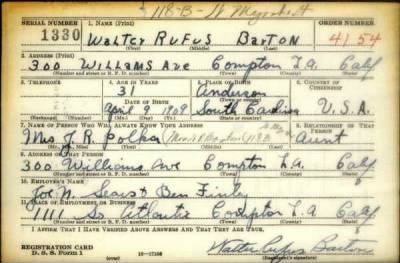 118-B- W
SERIAL NUMBER 1. NAME (Print) ORDER NUMBER
1330 Walter Rufus Barton 4154
(First) (Middle) (Last)
2. ADDRESS (Print)
300 Williams Ave Compton L.A Calif
(Number and street or R. F. D. number) (Town) (County) (State)
3. TELEPHONE 4. AGE IN YEARS 5. PLACE OF BIRTH 6. COUNTRY OF CITIZENSHIP
31 Anderson
DATE OF BIRTH (Town or county)
April 9 1909 South Carolina U.S.A.
(Exchange) (No.) (Mo.) (Day) (Yr.) (State or country)
7. NAME OF PERSON WHO WILL ALWAYS KNOW YOUR ADDRESS 8. RELATIONSHIP OF THAT PERSON
Mrs J. R. Polka Aunt
(Mr., Mrs., Miss) (First) (Middle) (Last)
9. ADDRESS OF THAT PERSON
300 Williams Ave Compton L.A Calif
(Number and street or R. F. D. number) (Town) (County) (State)
10. EMPLOYER'S NAME
Joe W. Sears & Ben Finley
11. PLACE OF EMPLOYMENT OR BUSINESS
1111 So Atlantic Compton L.A Calif
(Number and street or R. F. D. number) (Town) (County) (State)
I AFFIRM THAT I HAVE VERIFIED ABOVE ANSWERS AND THAT THEY ARE TRUE.
REGISTRATION CARD
D. S. S. Form 1 16-17105 Walter Rufus Barton
(Registrant's signature)